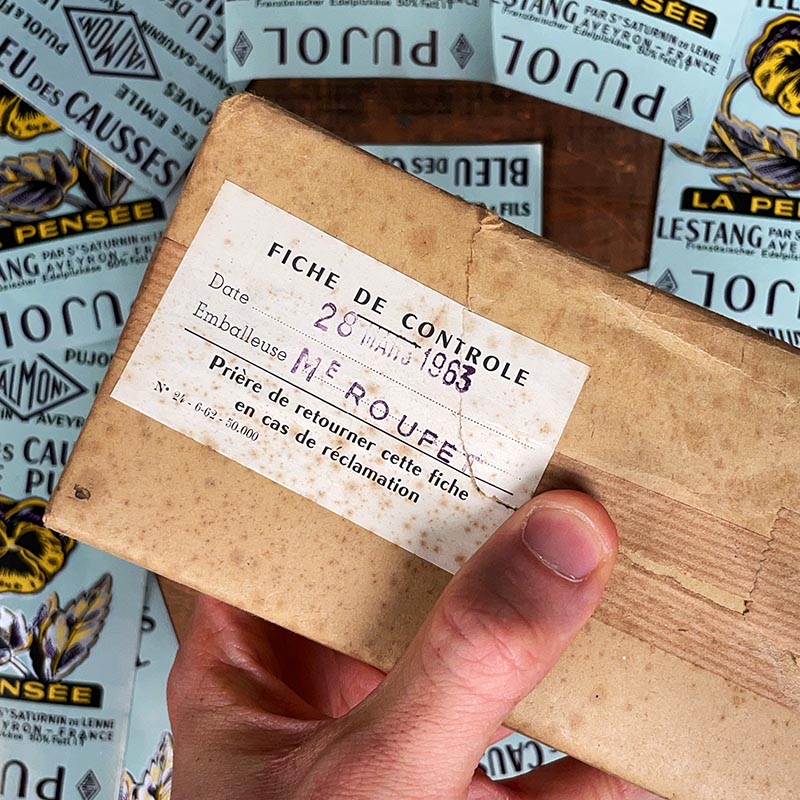 FICHE DE CONTROLE
Date 28 MARS 1963
Emballeuse ME ROUPET
Prière de retourner cette fiche
en cas de réclamation
N° 24-6-62-50.000
VALMONT
BLEU DES CAUSSES
CAVES SAINT-SATURNIN
Ets EMILE
PUJOL
PUJOL
Französischer Edelpilzkäse 50% Fett i T
LESTANG PAR St SATURNIN DE LENNE
AVEYRON-FRANCE
LA PENSÉE
PUJOL
BLEU DES
& FILS
LESTANG PAR St SATURNIN
AVEYRON
Französischer Edelpilzkäse
PUJOL
PENSÉE
AVEYRON
PUJOL
VALMONT
PENSÉE
St SATURNIN DE LENNE
AVEYRON-FRANCE
PUJOL